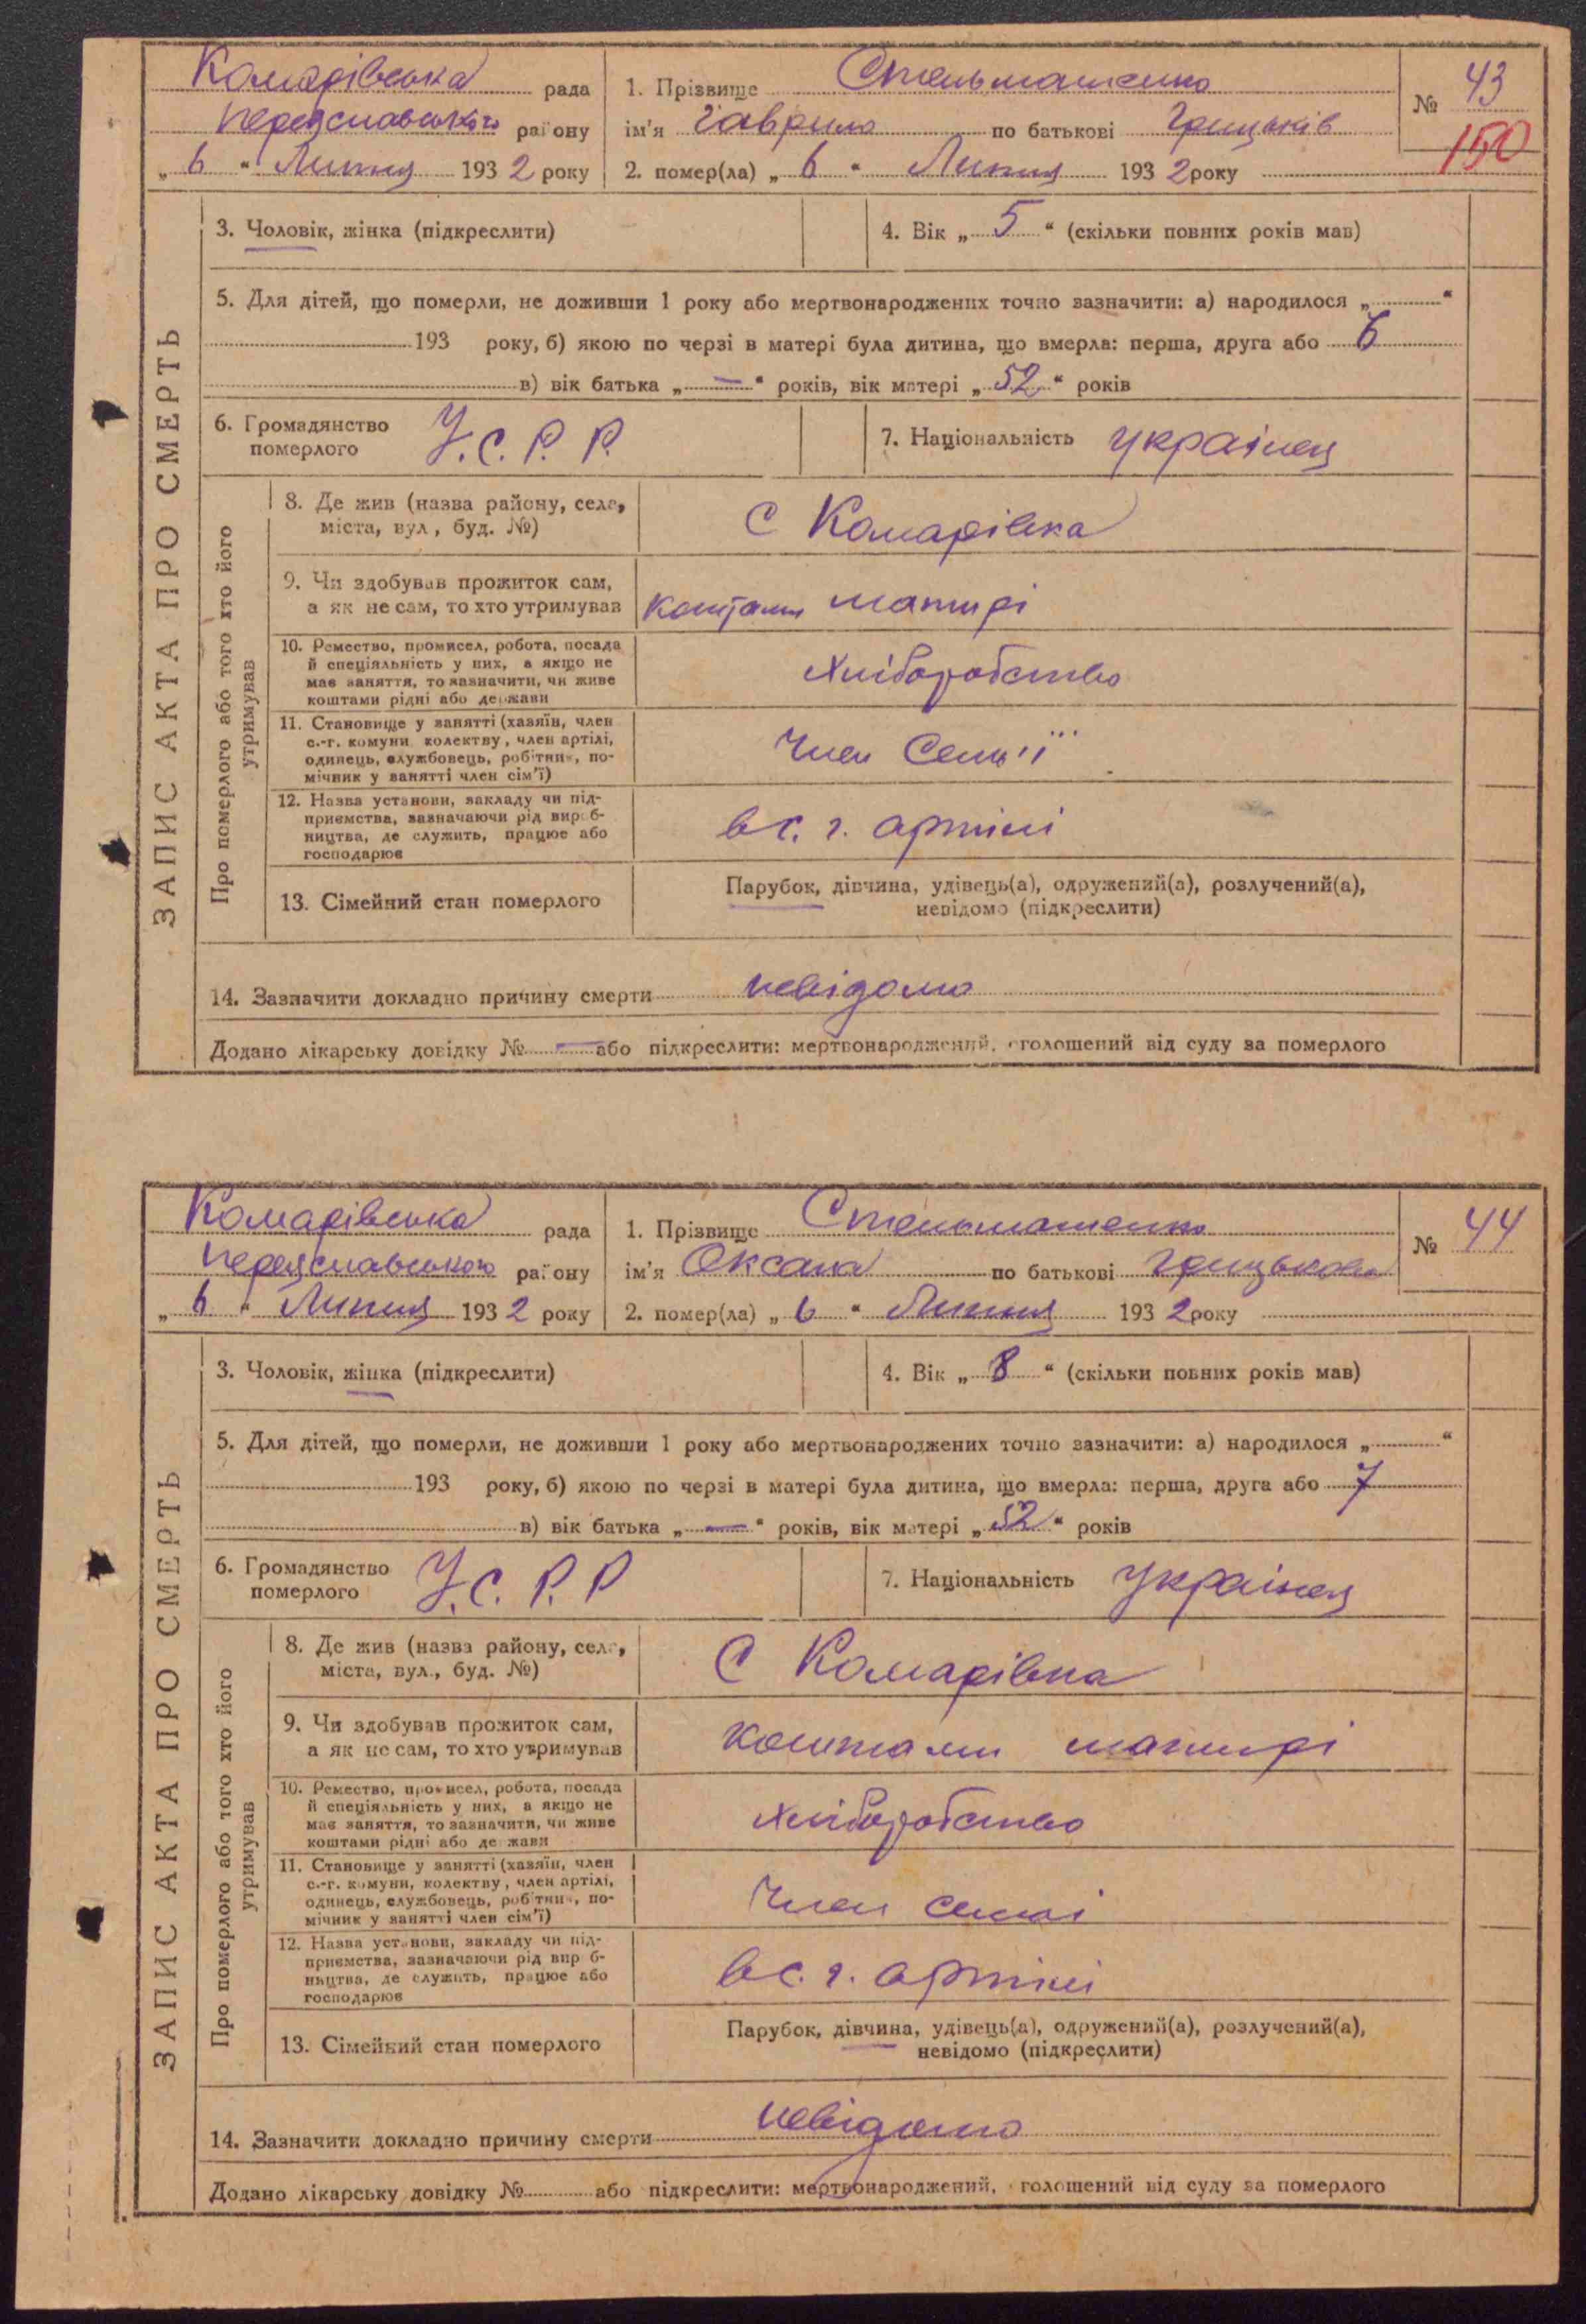 Комарівська рада 1. Прізвище Стельмашенко № 43
Переяславського району ім'я Гаврило по батькові Грицьків 150
„ 6 “ Липня 1932 року 2. помер(ла) „ 6 “ Липня 1932 року
ЗАПИС АКТА ПРО СМЕРТЬ
3. Чоловік, жінка (підкреслити) 4. Вік „ 5 “ (скільки повних років мав)
5. Для дітей, що померли, не доживши 1 року або мертвонароджених точно зазначити: а) народилося „ “
193 року, б) якою по черзі в матері була дитина, що вмерла: перша, друга або 6
в) вік батька „ — “ років, вік матері „ 52 “ років
6. Громадянство померлого У.С.Р.Р. 7. Національність українец
Про померлого або того хто його утримував
8. Де жив (назва району, села,
міста, вул., буд. №) с Комарівка
9. Чи здобував прожиток сам,
а як не сам, то хто утримував коштами матирі
10. Ремество, промисел, робота, посада
й спеціяльність у них, а якщо не
має заняття, то зазначити, чи живе
коштами рідні або держави
хліборобство
11. Становище у занятті (хазяїн, член
с.-г. комуни, колективу, член артілі,
одинець, службовець, робітник, по-
мічник у занятті член сім'ї)
член Семьії
12. Назва установи, закладу чи під-
приємства, зазначаючи рід вироб-
ництва, де служить, працює або
господарює
в с. г. артілі
13. Сімейний стан померлого Парубок, дівчина, удівець(а), одружений(а), розлучений(а),
невідомо (підкреслити)
14. Зазначити докладно причину смерти невідомо
Додано лікарську довідку № — або підкреслити: мертвонароджений, оголошений від суду за померлого
Комарівська рада 1. Прізвище Стельмашенко № 44
Переяславського району ім'я Оксана по батькові Грицькова
„ 6 “ Липня 1932 року 2. помер(ла) „ 6 “ Липня 1932 року
ЗАПИС АКТА ПРО СМЕРТЬ
3. Чоловік, жінка (підкреслити) 4. Вік „ 8 “ (скільки повних років мав)
5. Для дітей, що померли, не доживши 1 року або мертвонароджених точно зазначити: а) народилося „ “
193 року, б) якою по черзі в матері була дитина, що вмерла: перша, друга або 7
в) вік батька „ — “ років, вік матері „ 52 “ років
6. Громадянство померлого У.С.Р.Р 7. Національність українец
Про померлого або того хто його утримував
8. Де жив (назва району, села,
міста, вул., буд. №) с Комарівка
9. Чи здобував прожиток сам,
а як не сам, то хто утримував коштами матирі
10. Ремество, промисел, робота, посада
й спеціяльність у них, а якщо не
має заняття, то зазначити, чи живе
коштами рідні або держави
хліборобство
11. Становище у занятті (хазяїн, член
с.-г. комуни, колективу, член артілі,
одинець, службовець, робітник, по-
мічник у занятті член сім'ї)
член семьі
12. Назва установи, закладу чи під-
приємства, зазначаючи рід вироб-
ництва, де служить, працює або
господарює
в с. г. артілі
13. Сімейний стан померлого Парубок, дівчина, удівець(а), одружений(а), розлучений(а),
невідомо (підкреслити)
14. Зазначити докладно причину смерти невідомо
Додано лікарську довідку № або підкреслити: мертвонароджений, оголошений від суду за померлого